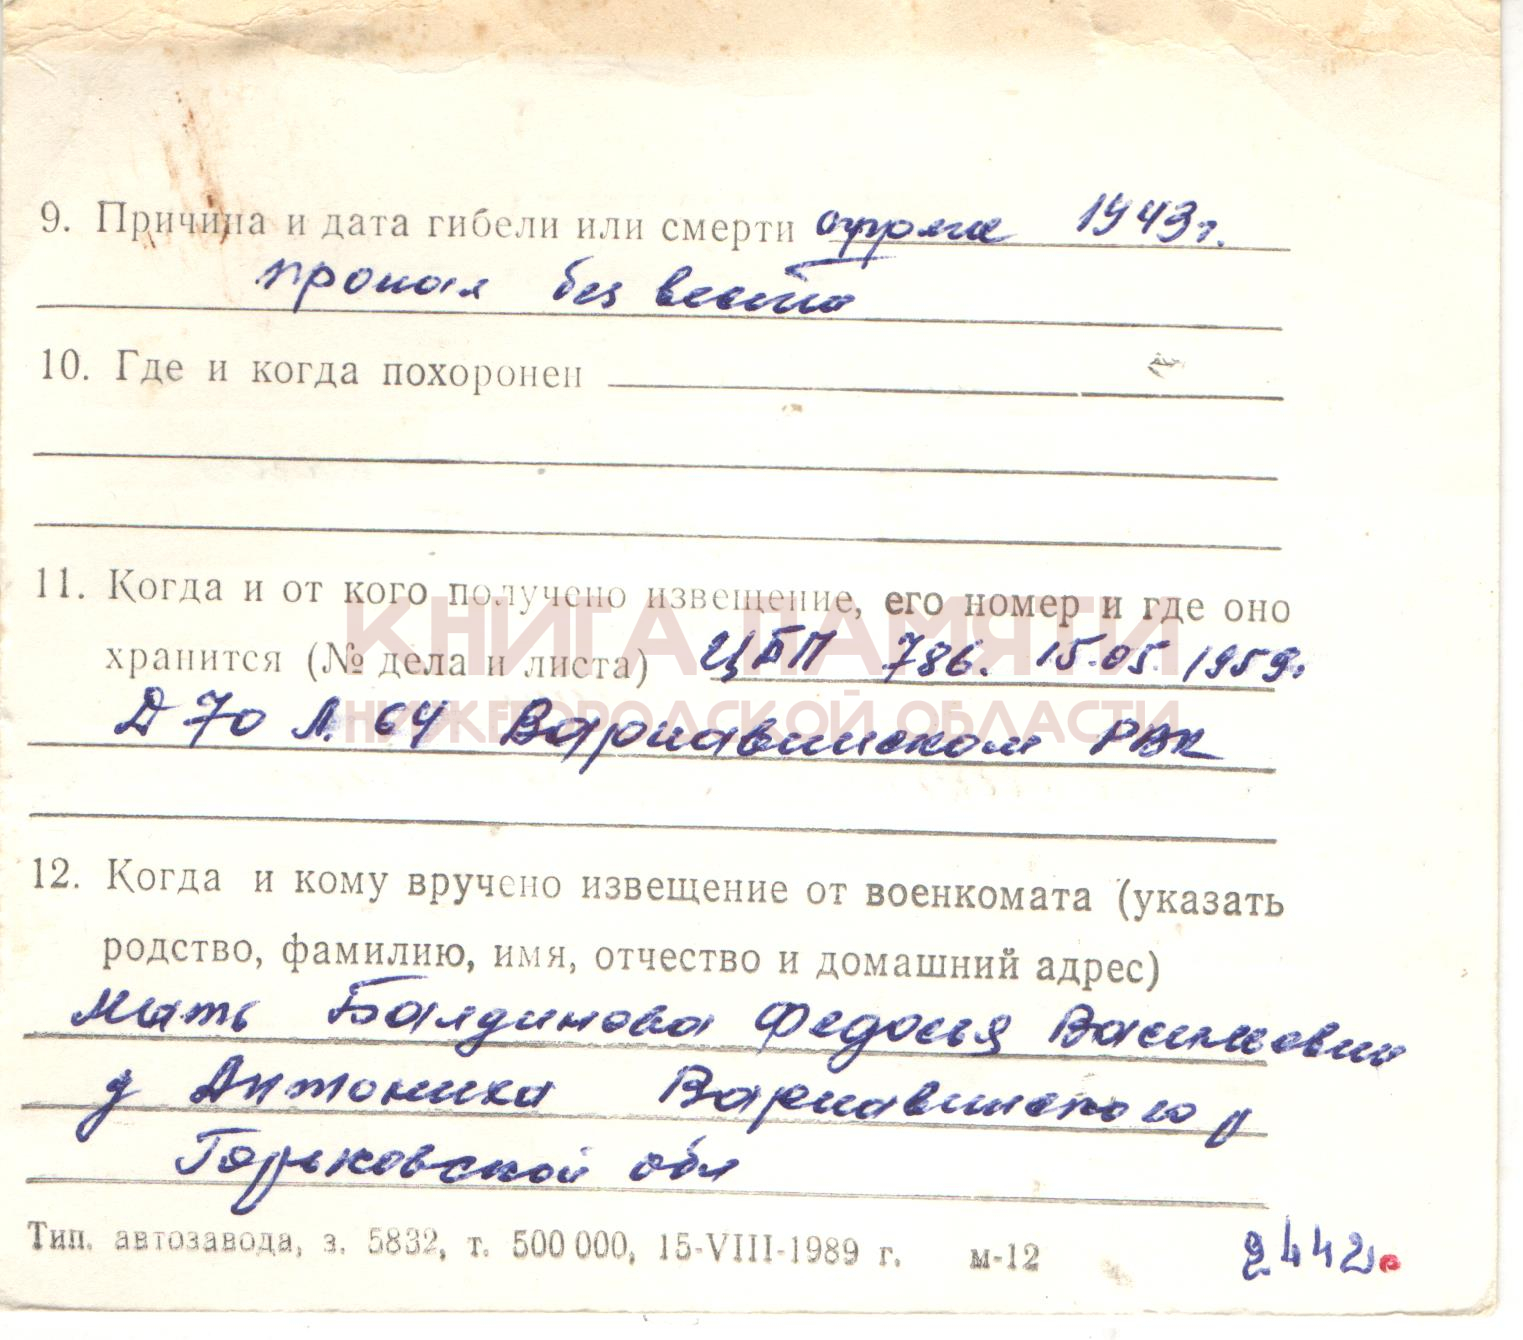 9. Причина и дата гибели или смерти 1943г.
пропал без вести
10. Где и когда похоронен
11. Когда и от кого получено извещение, его номер и где оно
хранится (№ дела и листа) ЦБП 786. 15.05.1959г.
КНИГА ПАМЯТИ
НИЖЕГОРОДСКОЙ ОБЛАСТИ
Д 70 Л. 64 Варнавинском РВК
12. Когда и кому вручено извещение от военкомата (указать
родство, фамилию, имя, отчество и домашний адрес)
Мать Балдинова Федосья
д Антониха Варнавинского р
Горьковской обл
Тип. автозавода, з. 5832, т. 500 000, 15-VIII-1989 г. м-12
2442